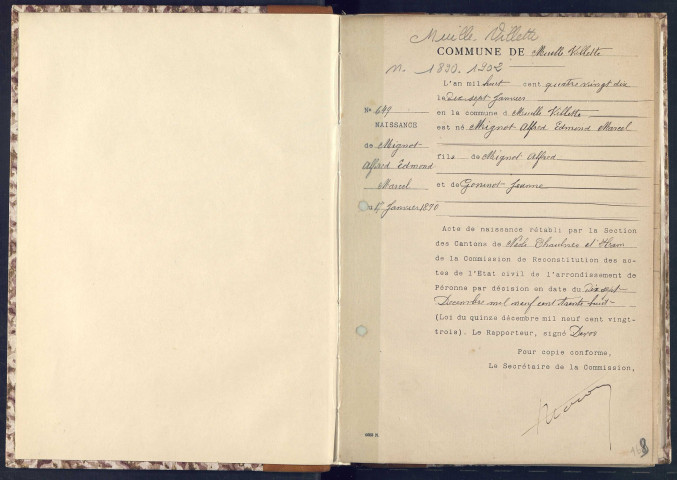 Muille Villette
COMMUNE DE Muille Villette
N. 1890-1902
L'an mil huit cent quatre vingt dix
le dix sept Janvier
No 649
en la commune d Muille Villette
NAISSANCE
est né Mignot Alfred Edmond Marcel
de Mignot
Alfred Edmond
fils de Mignot Alfred
Marcel
et de Jeanne
17 Janvier 1890
Acte de naissance rétabli par la Section
des Cantons de Nesle Chaulnes et Ham
de la Commission de Reconstitution des ac-
tes de l'Etat civil de l'arrondissement de
Péronne par décision en date du dix sept
Decembre mil neuf cent trente huit
(Loi du quinze décembre mil neuf cent vingt-
trois). Le Rapporteur, signé
Pour copie conforme,
Le Secrétaire de la Commission,